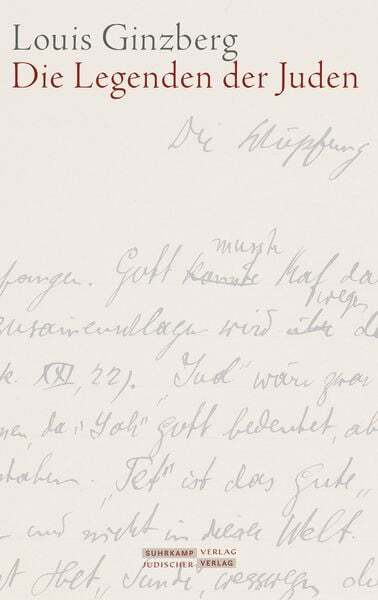 Louis Ginzberg
Die Legenden der Juden
Die Schöpfung
musste
fangen. Gott konnte Kaf da
wegen
wird über
k. XXI, 22). „Jud“ wäre zwar
men, da „Yah“ Gott bedeutet, ab
staben. „Tet“ ist das Gute„
und nicht in dieser Welt.
SUHRKAMP VERLAG
JÜDISCHER VERLAG
st Het, „Sünde, weswegen de